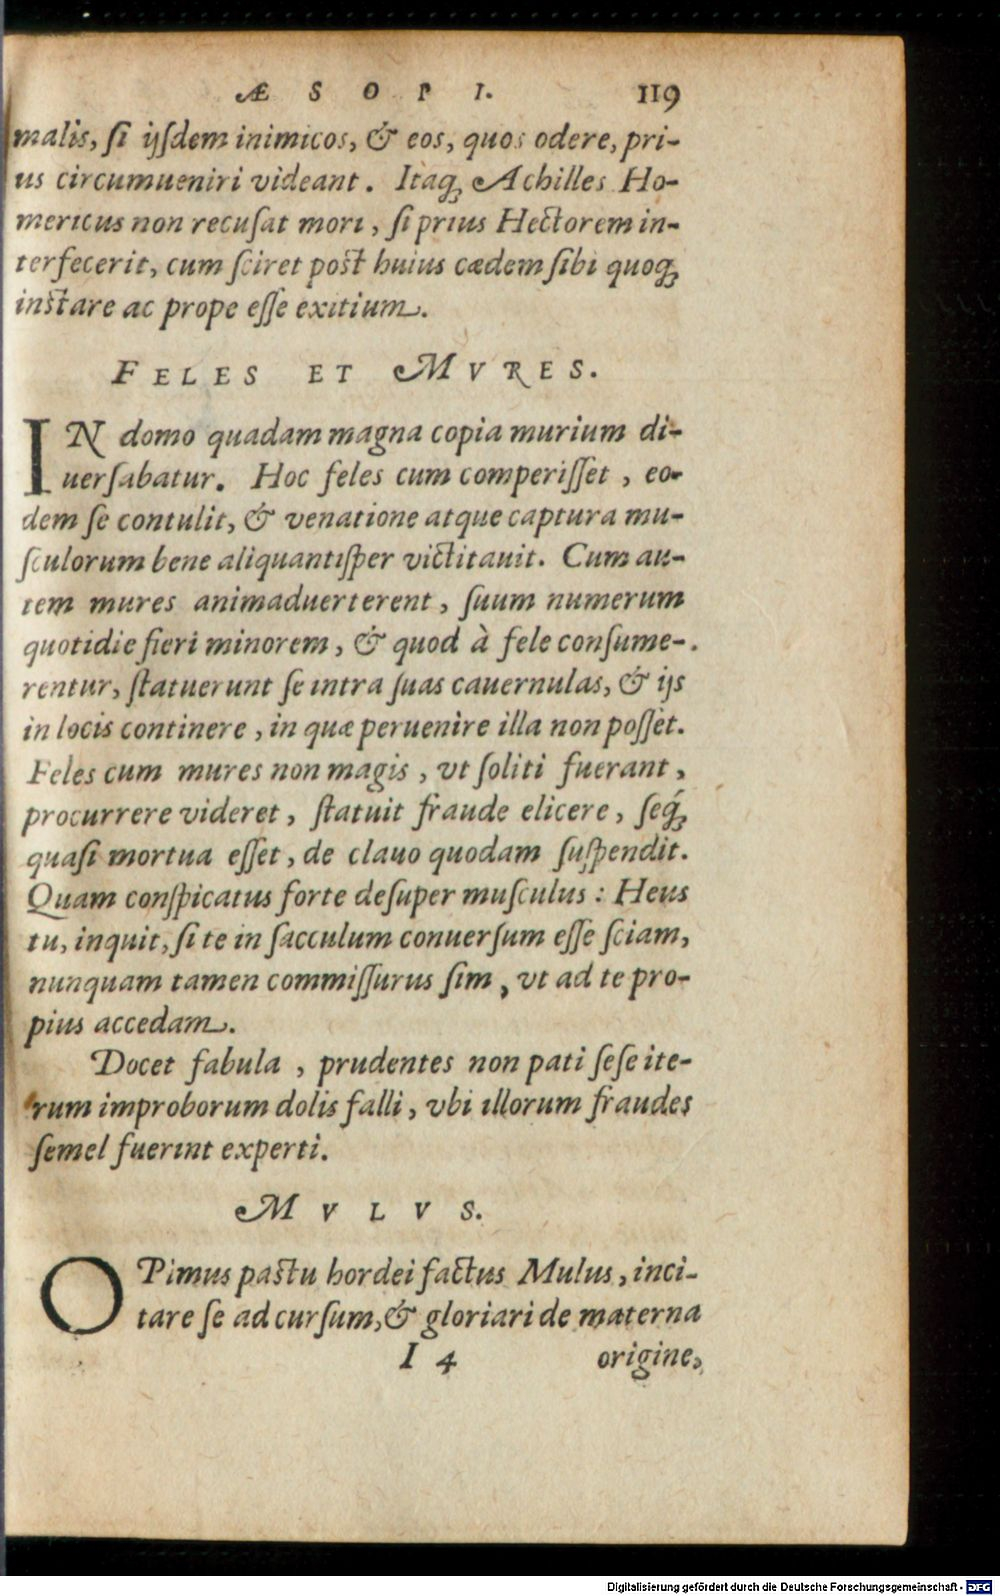 ÆSOPI. 119
malis, ſi ijſdem inimicos, & eos, quos odere, pri-
us circumueniri videant. Itaq́; Achilles Ho-
mericus non recuſat mori, ſi prius Hectorem in-
terfecerit, cum ſciret poſt huius cædem ſibi quoq;
inſtare ac prope eſſe exitium.
FELES ET MVRES.
IN domo quadam magna copia murium di-
uerſabatur. Hoc feles cum comperiſſet, eo-
dem ſe contulit, & venatione atque captura mu-
ſculorum bene aliquantiſper victitauit. Cum au-
tem mures animaduerterent, ſuum numerum
quotidie fieri minorem, & quod à fele conſume-
rentur, ſtatuerunt ſe intra ſuas cauernulas, & ijs
in locis continere, in quæ peruenire illa non poſſet.
Feles cum mures non magis, vt ſoliti fuerant,
procurrere videret, ſtatuit fraude elicere, ſeq́;
quaſi mortua eſſet, de clauo quodam ſuſpendit.
Quam conſpicatus forte deſuper muſculus: Heus
tu, inquit, ſi te in ſacculum conuerſum eſſe ſciam,
nunquam tamen commiſſurus ſim, vt ad te pro-
pius accedam.
Docet fabula, prudentes non pati ſeſe ite-
rum improborum dolis falli, vbi illorum fraudes
ſemel fuerint experti.
MVLVS.
OPimus paſtu hordei factus Mulus, inci-
tare ſe ad curſum, & gloriari de materna
I 4 origine,
Digitalisierung gefördert durch die Deutsche Forschungsgemeinschaft - DFG